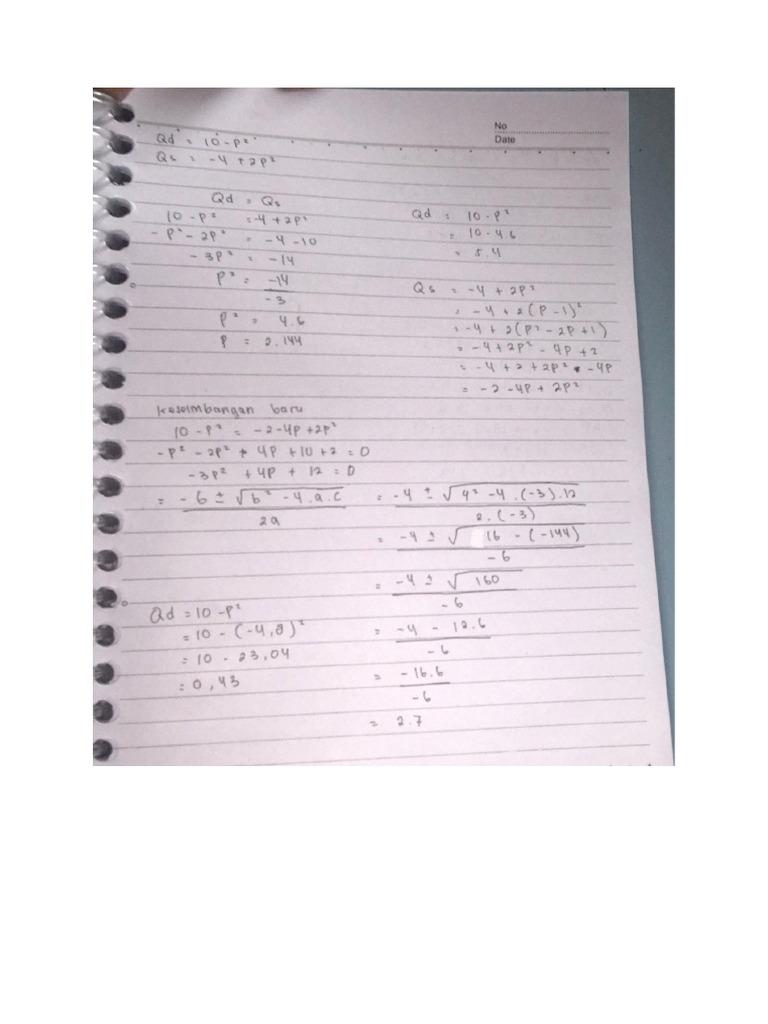 No
Date
Qd = 10 - P²
Qs = -4 + 2P²
Qd = Qs
10 - P² = -4 + 2P²
- P² - 2P² = -4 - 10
- 3P² = -14
P² = -14
-3
P² = 4.6
P = 2.144
Qd = 10 - P²
= 10 - 4.6
= 5.4
Qs = -4 + 2P²
= -4 + 2(P - 1)²
= -4 + 2(P² - 2P + 1)
= -4 + 2P² - 4P + 2
= -4 + 2 + 2P² - 4P
= -2 - 4P + 2P²
Keseimbangan baru
10 - P² = -2 - 4P + 2P²
-P² - 2P² + 4P + 10 + 2 = 0
-3P² + 4P + 12 = 0
= -6 ± √b² - 4.a.c
2a
= -4 ± √4² - 4.(-3).12
2.(-3)
= -4 ± √16 - (-144)
-6
= -4 ± √160
-6
= -4 - 12.6
-6
= -16.6
-6
= 2.7
Qd = 10 - P²
= 10 - (-4,8)²
= 10 - 23,04
= 0,43